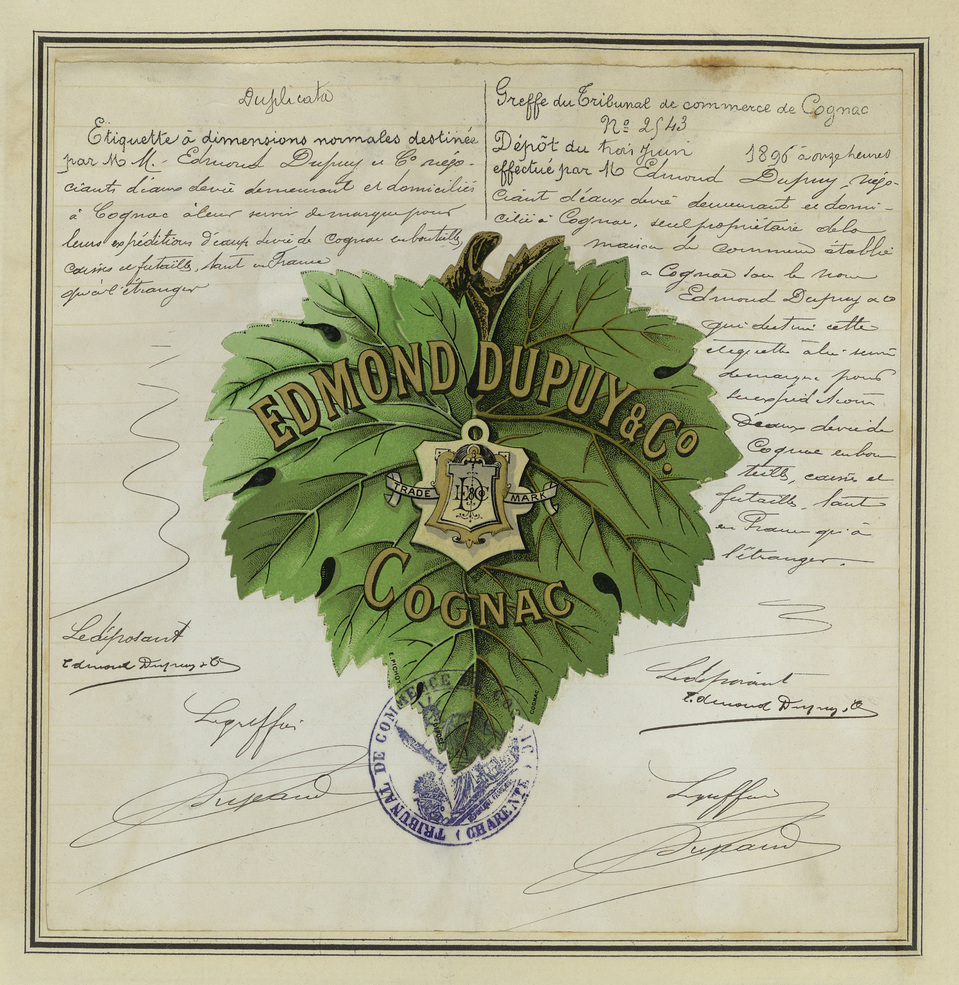 Duplicata
Etiquette à dimensions normales destinée
par M M. Edmond Dupuy et Co négo-
ciants d'eaux devie demeurant et domiciliés
à Cognac à leur servir de marque pour
leurs expéditions d'eaux devie de Cognac en bouteilles,
caisses et futailles, tant en France
qu'à l'étranger
Greffe du Tribunal de commerce de Cognac
No 2543
Dépôt du trois Juin 1896 à onze heures
effectué par M Edmond Dupuy, négo-
ciant d'eaux devie demeurant et domi-
cilié à Cognac, seul propriétaire de la
maison de commerce établie
à Cognac sous le nom
Edmond Dupuy & Co
qui destine cette
étiquette à lui servir
de marque pour
les expéditions
d'eaux devie de
Cognac en bou
teilles, caisses et
futailles, tant
en France qu'à
l'étranger.
EDMOND DUPUY & Co.
TRADE MARK
ED&C
COGNAC
E. PICHOT
Le déposant
Edmond Dupuy & Co
Le greffier
Le déposant
Edmond Dupuy & Co
Le greffier
TRIBUNAL DE COMMERCE DE COGNAC (CHARENTE)